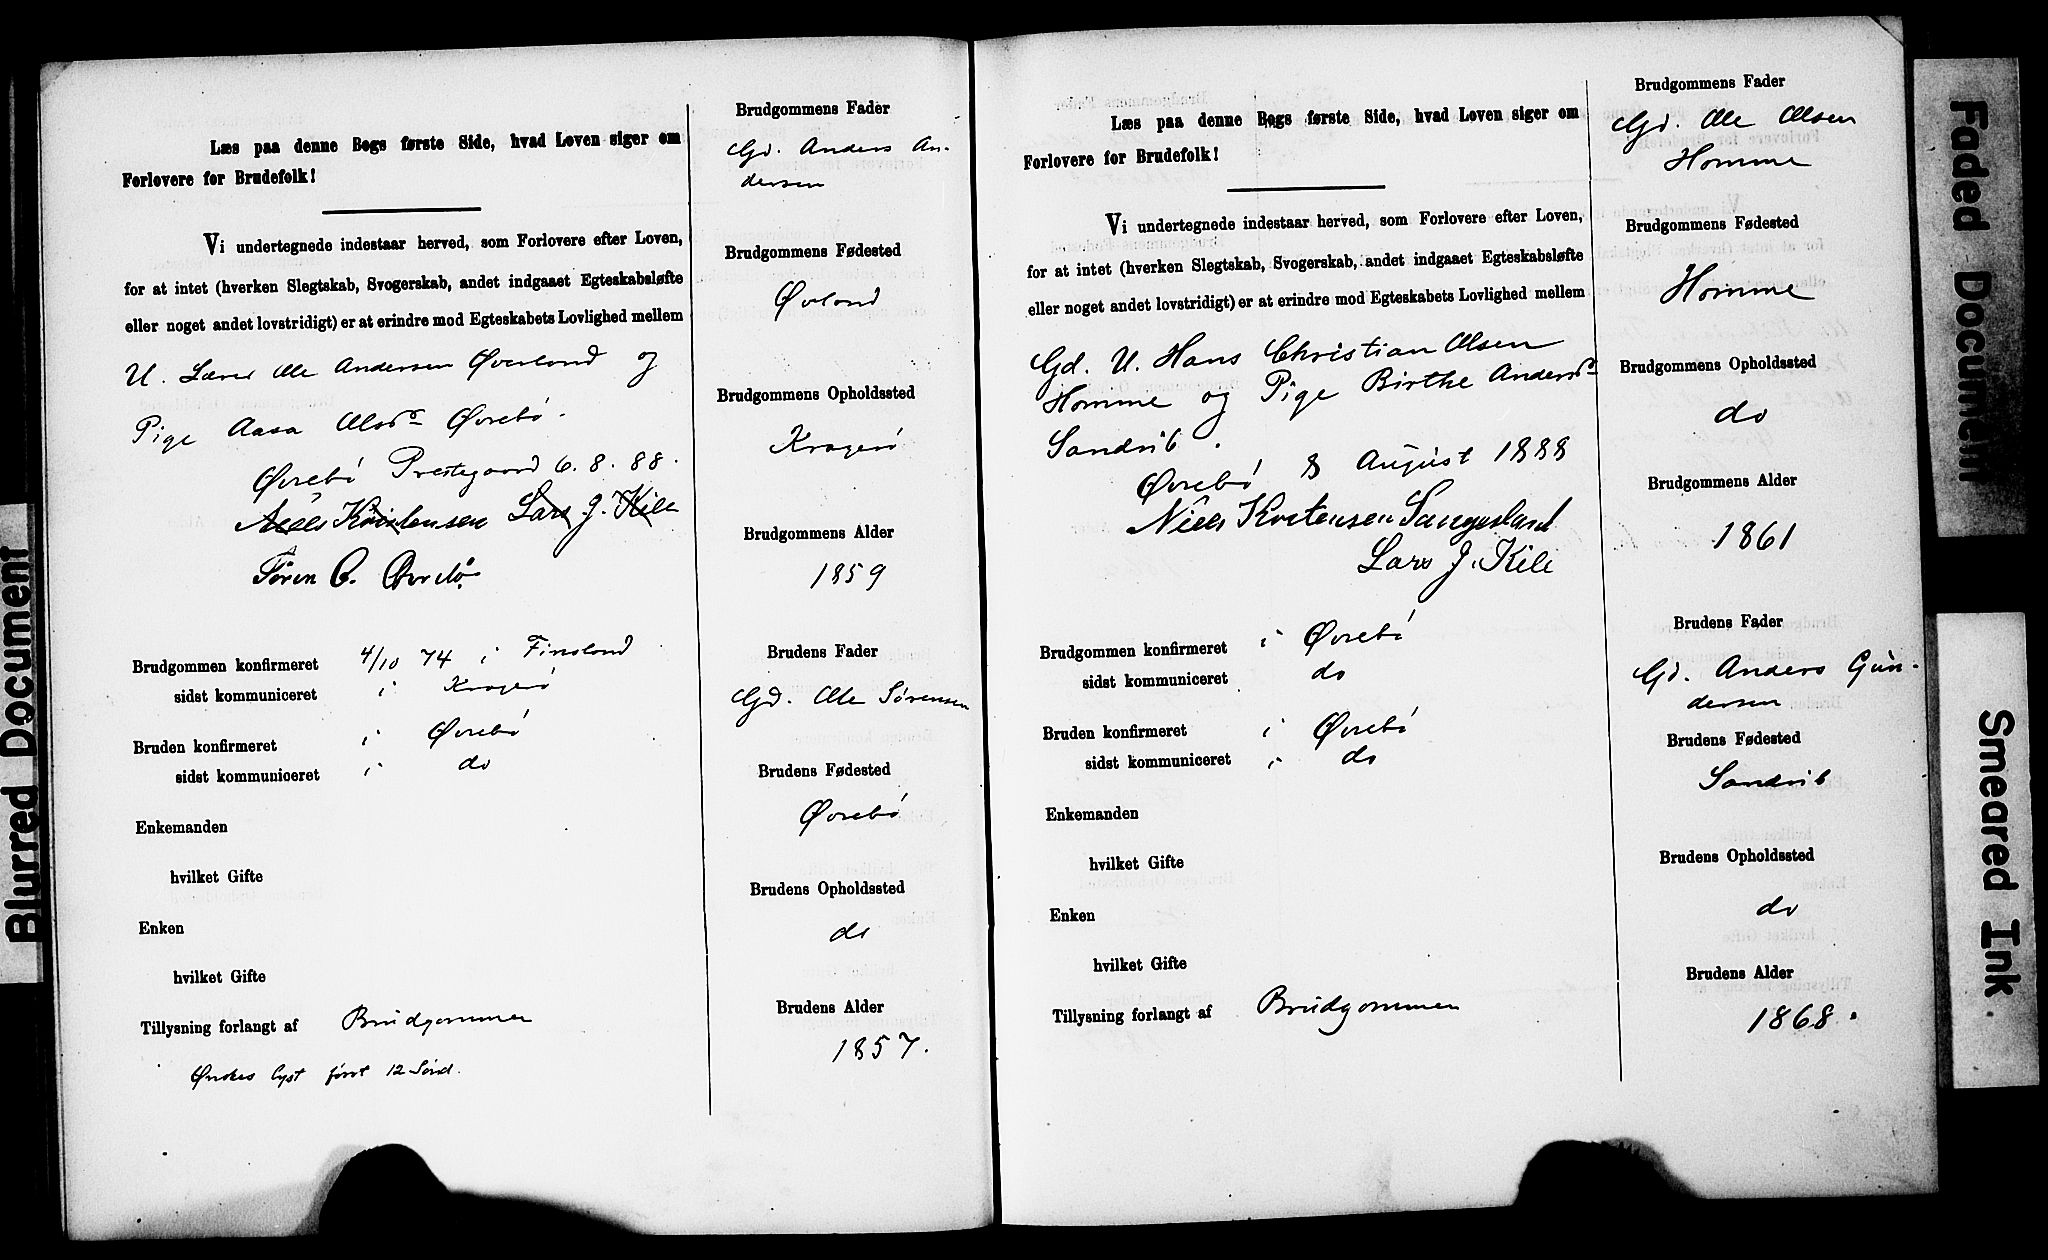 Læs paa denne Bogs første Side, hvad Loven siger om
Forlovere for Brudefolk!
Vi undertegnede indestaar herved, som Forlovere efter Loven,
for at intet (hverken Slegtskab, Svogerskab, andet indgaaet Egteskabsløfte
eller noget andet lovstridigt) er at erindre mod Egteskabets Lovlighed mellem
U. Lærer Ole Andersen Øverland og
Pige Aasa Olsdr Øvrebø.
Øvrebø Prestegaard 6.8.88.
Niels Kristensen Lars J. Kile
Søren O. Øvrebø
Brudgommen konfirmeret 4/10 74 i Finsland
sidst kommuniceret i Kragerø
Bruden konfirmeret i Øvrebø
sidst kommuniceret i do
Enkemanden
hvilket Gifte
Enken
hvilket Gifte
Tillysning forlangt af Brudgommen
Ønskes lyst først 12 Sønd.
Brudgommens Fader
Gd. Anders An-
dersen
Brudgommens Fødested
Øvland
Brudgommens Opholdssted
Kragerø
Brudgommens Alder
1859
Brudens Fader
Gd. Ole Sørensen
Brudens Fødested
Øvrebø
Brudens Opholdssted
do
Brudens Alder
1857.
Læs paa denne Bogs første Side, hvad Loven siger om
Forlovere for Brudefolk!
Vi undertegnede indestaar herved, som Forlovere efter Loven,
for at intet (hverken Slegtskab, Svogerskab, andet indgaaet Egteskabsløfte
eller noget andet lovstridigt) er at erindre mod Egteskabets Lovlighed mellem
Gd. U. Hans Christian Olsen
Homme og Pige Birthe Andersdr
Sandvik.
Øvrebø 8 August 1888
Niels Kristensen Sangesland
Lars J. Kile
Brudgommen konfirmeret i Øvrebø
sidst kommuniceret do
Bruden konfirmeret i Øvrebø
sidst kommuniceret i do
Enkemanden
hvilket Gifte
Enken
hvilket Gifte
Tillysning forlangt af Brudgommen
Brudgommens Fader
Gd. Ole Olsen
Homme
Brudgommens Fødested
Homme
Brudgommens Opholdssted
do
Brudgommens Alder
1861
Brudens Fader
Gd. Anders Gun-
dersen
Brudens Fødested
Sandvik
Brudens Opholdssted
do
Brudens Alder
1868.
Blurred Document
Faded Document
Smeared Ink.